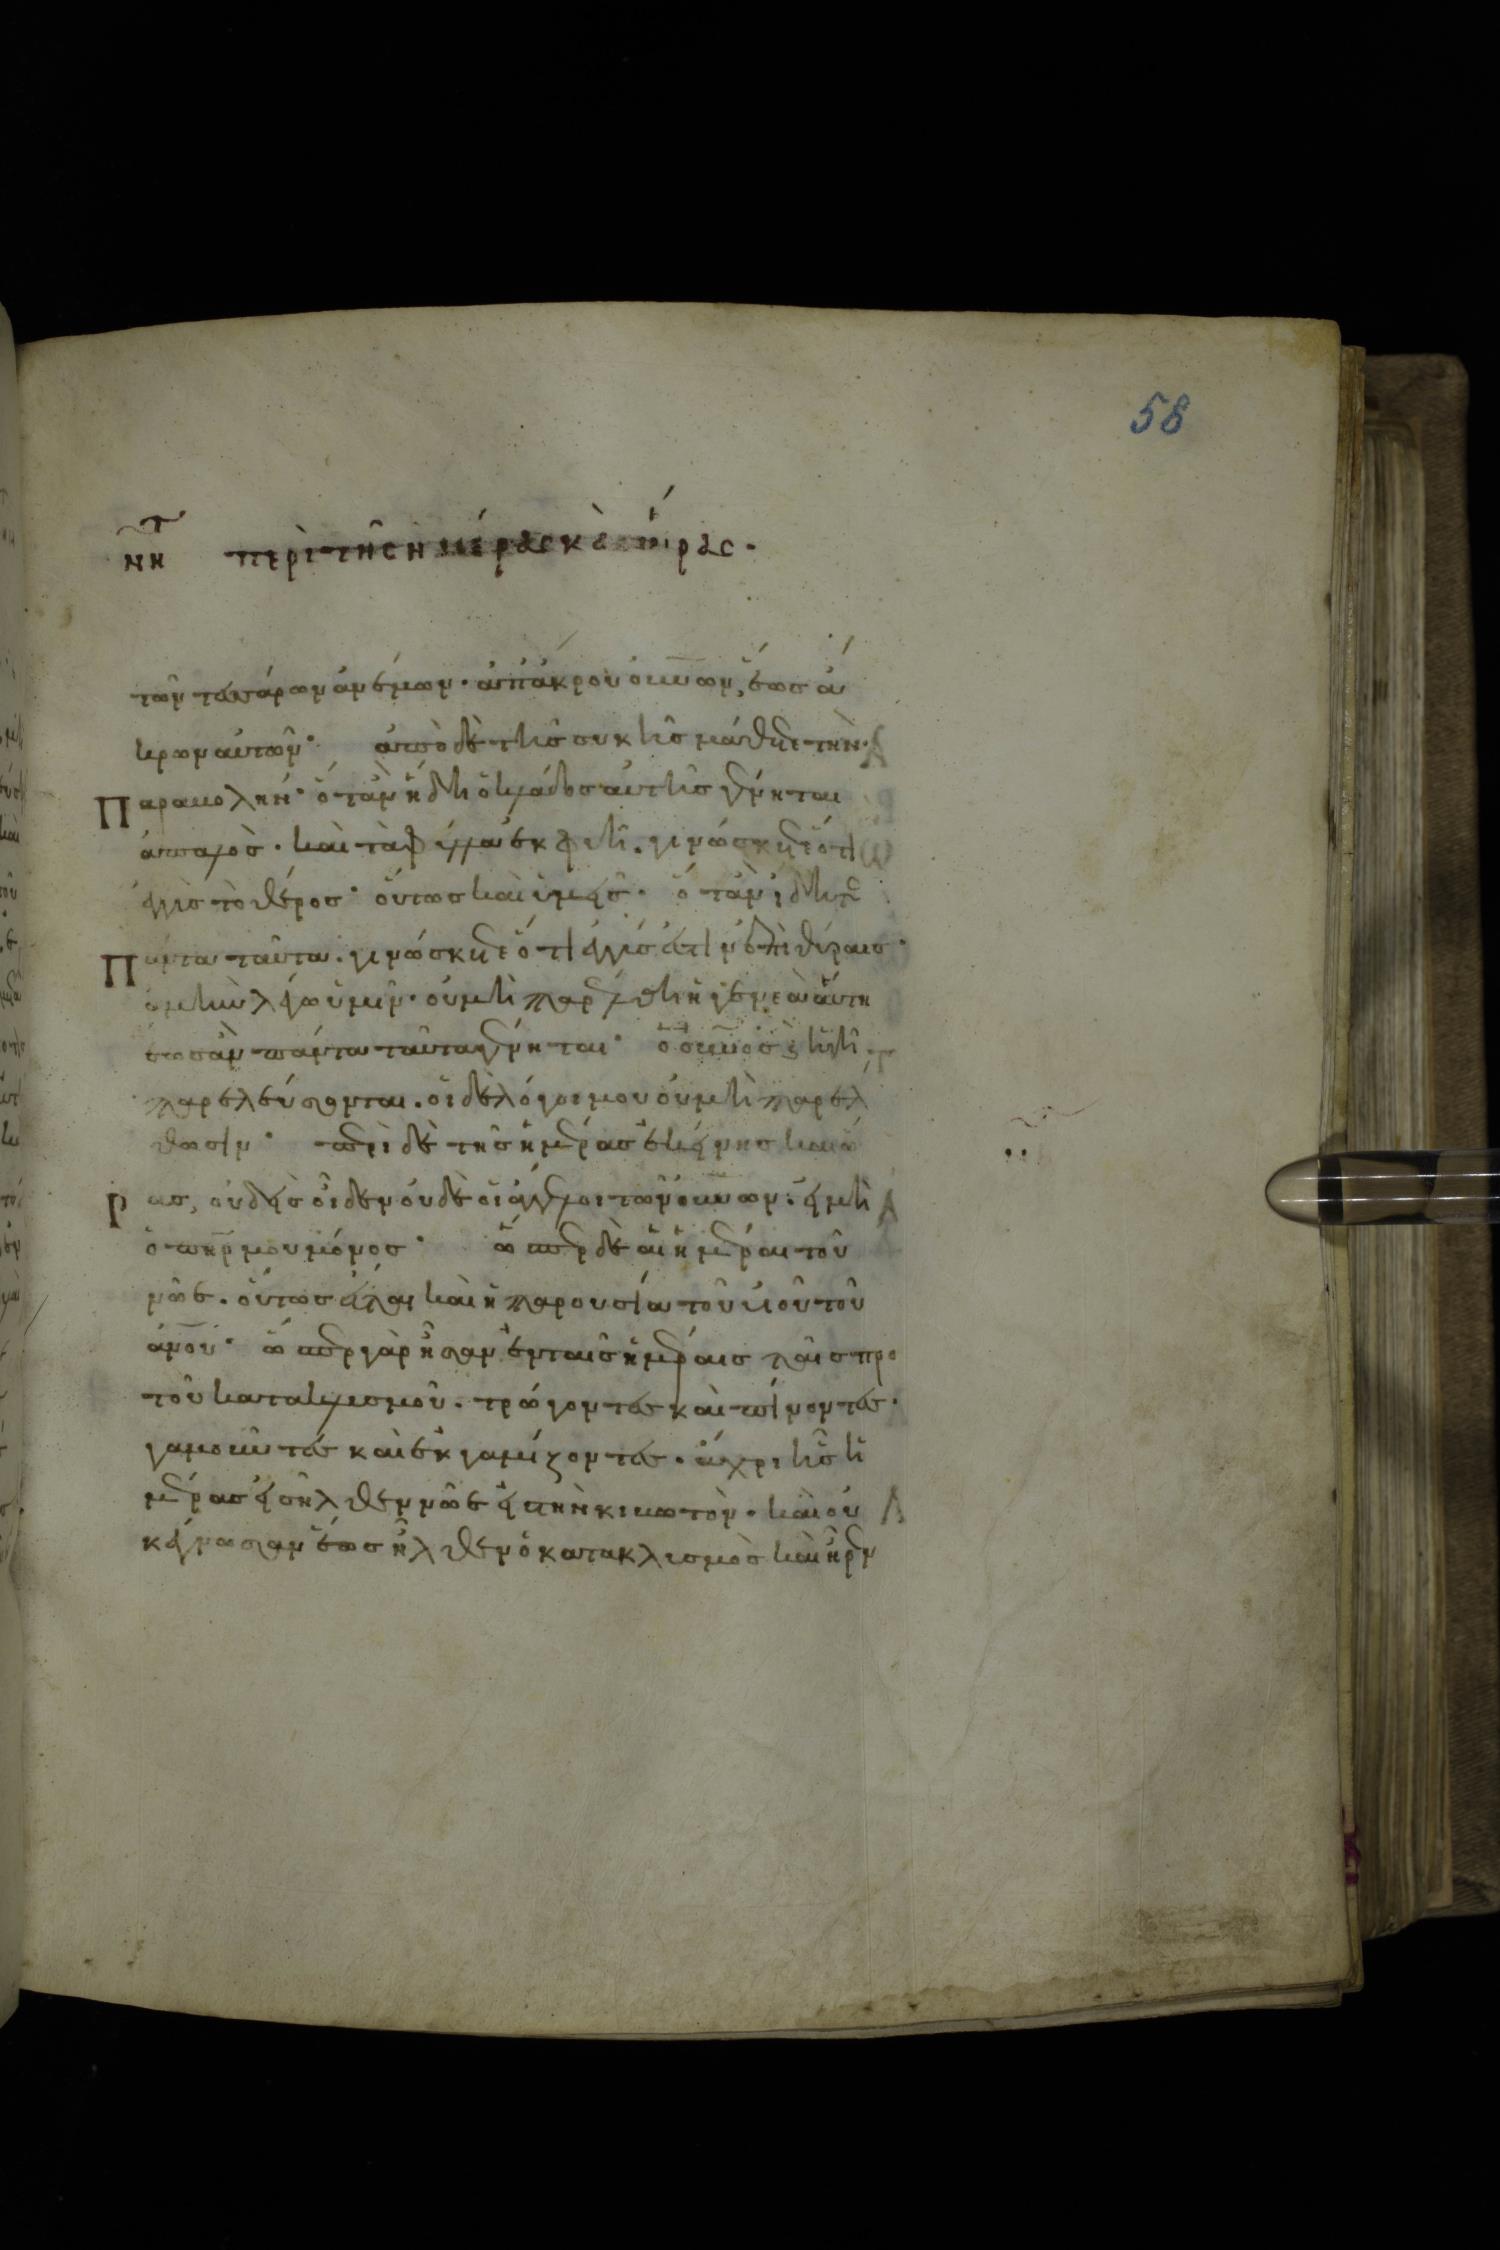 58
νη περὶ τῆς ἡμέρας κὰ ὥρας.
τῶν τεσσάρων ἀνέμων. ἀπ ἄκρου οὐνῶν, ἕως ἄ
κρων αὐτῶν. ἀπὸ δὲ τῆς συκῆς μάθετε τὴν
Παραβολήν. ὅταν ἤδη ὁ κλάδος αὐτῆς γένηται
ἁπαλὸς. καὶ τὰ φύλλα ἐκφυῆ. γινώσκετε ὅτι
ἐγγὺς τὸ θέρος. οὕτως καὶ ὑμεῖς. ὅταν ἴδητε
Πάντα ταῦτα. γινώσκετε ὅτι ἐγγύς ἐστιν ἐπὶ θύραις.
ἀμὴν λέγω ὑμῖν. οὐ μὴ παρέλθη ἡ γενεὰ αὕτη
ἕως ἂν πάντα ταῦτα γένηται. ὁ οὐνὸς καὶ ἡ γῆ
παρελεύσονται. οἱ δὲ λόγοι μου οὐ μὴ παρέλ
θωσιν. περὶ δὲ τῆς ἡμέρας ἐκείνης καὶ ὥ
Ρας, οὐδεὶς οἶδεν οὐδὲ οἱ ἄγγελοι τῶν οὐνῶν. εἰ μὴ
ὁ πηρ μου μόνος. ὥσπερ δὲ αἱ ἡμέραι τοῦ
νῶε. οὕτως ἔσται καὶ ἡ παρουσία τοῦ υἱοῦ τοῦ
ἀνου. ὥσπερ γὰρ ἦσαν ἐν ταῖς ἡμέραις ταῖς προ
τοῦ κατακλυσμοῦ. τρώγοντες καὶ πίνοντες.
γαμοῦντες καὶ ἐκγαμίζοντες. ἄχρι ἧς ἡ
μέρας εἰσῆλθεν νῶε εἰς τὴν κιβωτὸν. καὶ οὐ
κ ἔγνωσαν ἕως ἦλθεν ὁ κατακλυσμὸς καὶ ἦρεν